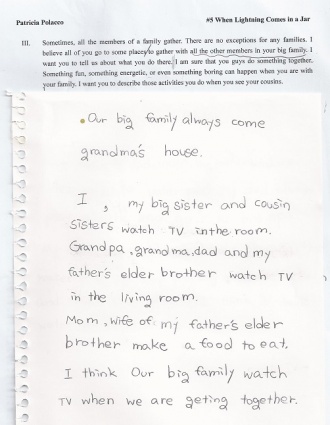 Patricia Polacco #5 When Lightning Comes in a Jar
III. Sometimes, all the members of a family gather. There are no exceptions for any families. I
believe all of you go to some place to gather with all the other members in your big family. I
want you to tell us about what you do there. I am sure that you guys do something together.
Something fun, something energetic, or even something boring can happen when you are with
your family. I want you to describe those activities you do when you see your cousins.
Our big family always come
grandma's house.
I, my big sister and cousin
sisters watch TV in the room.
Grandpa, grandma, dad and my
father's elder brother watch TV
in the living room.
Mom, wife of my father's elder
brother make a food to eat.
I think Our big family watch
TV when we are geting together.